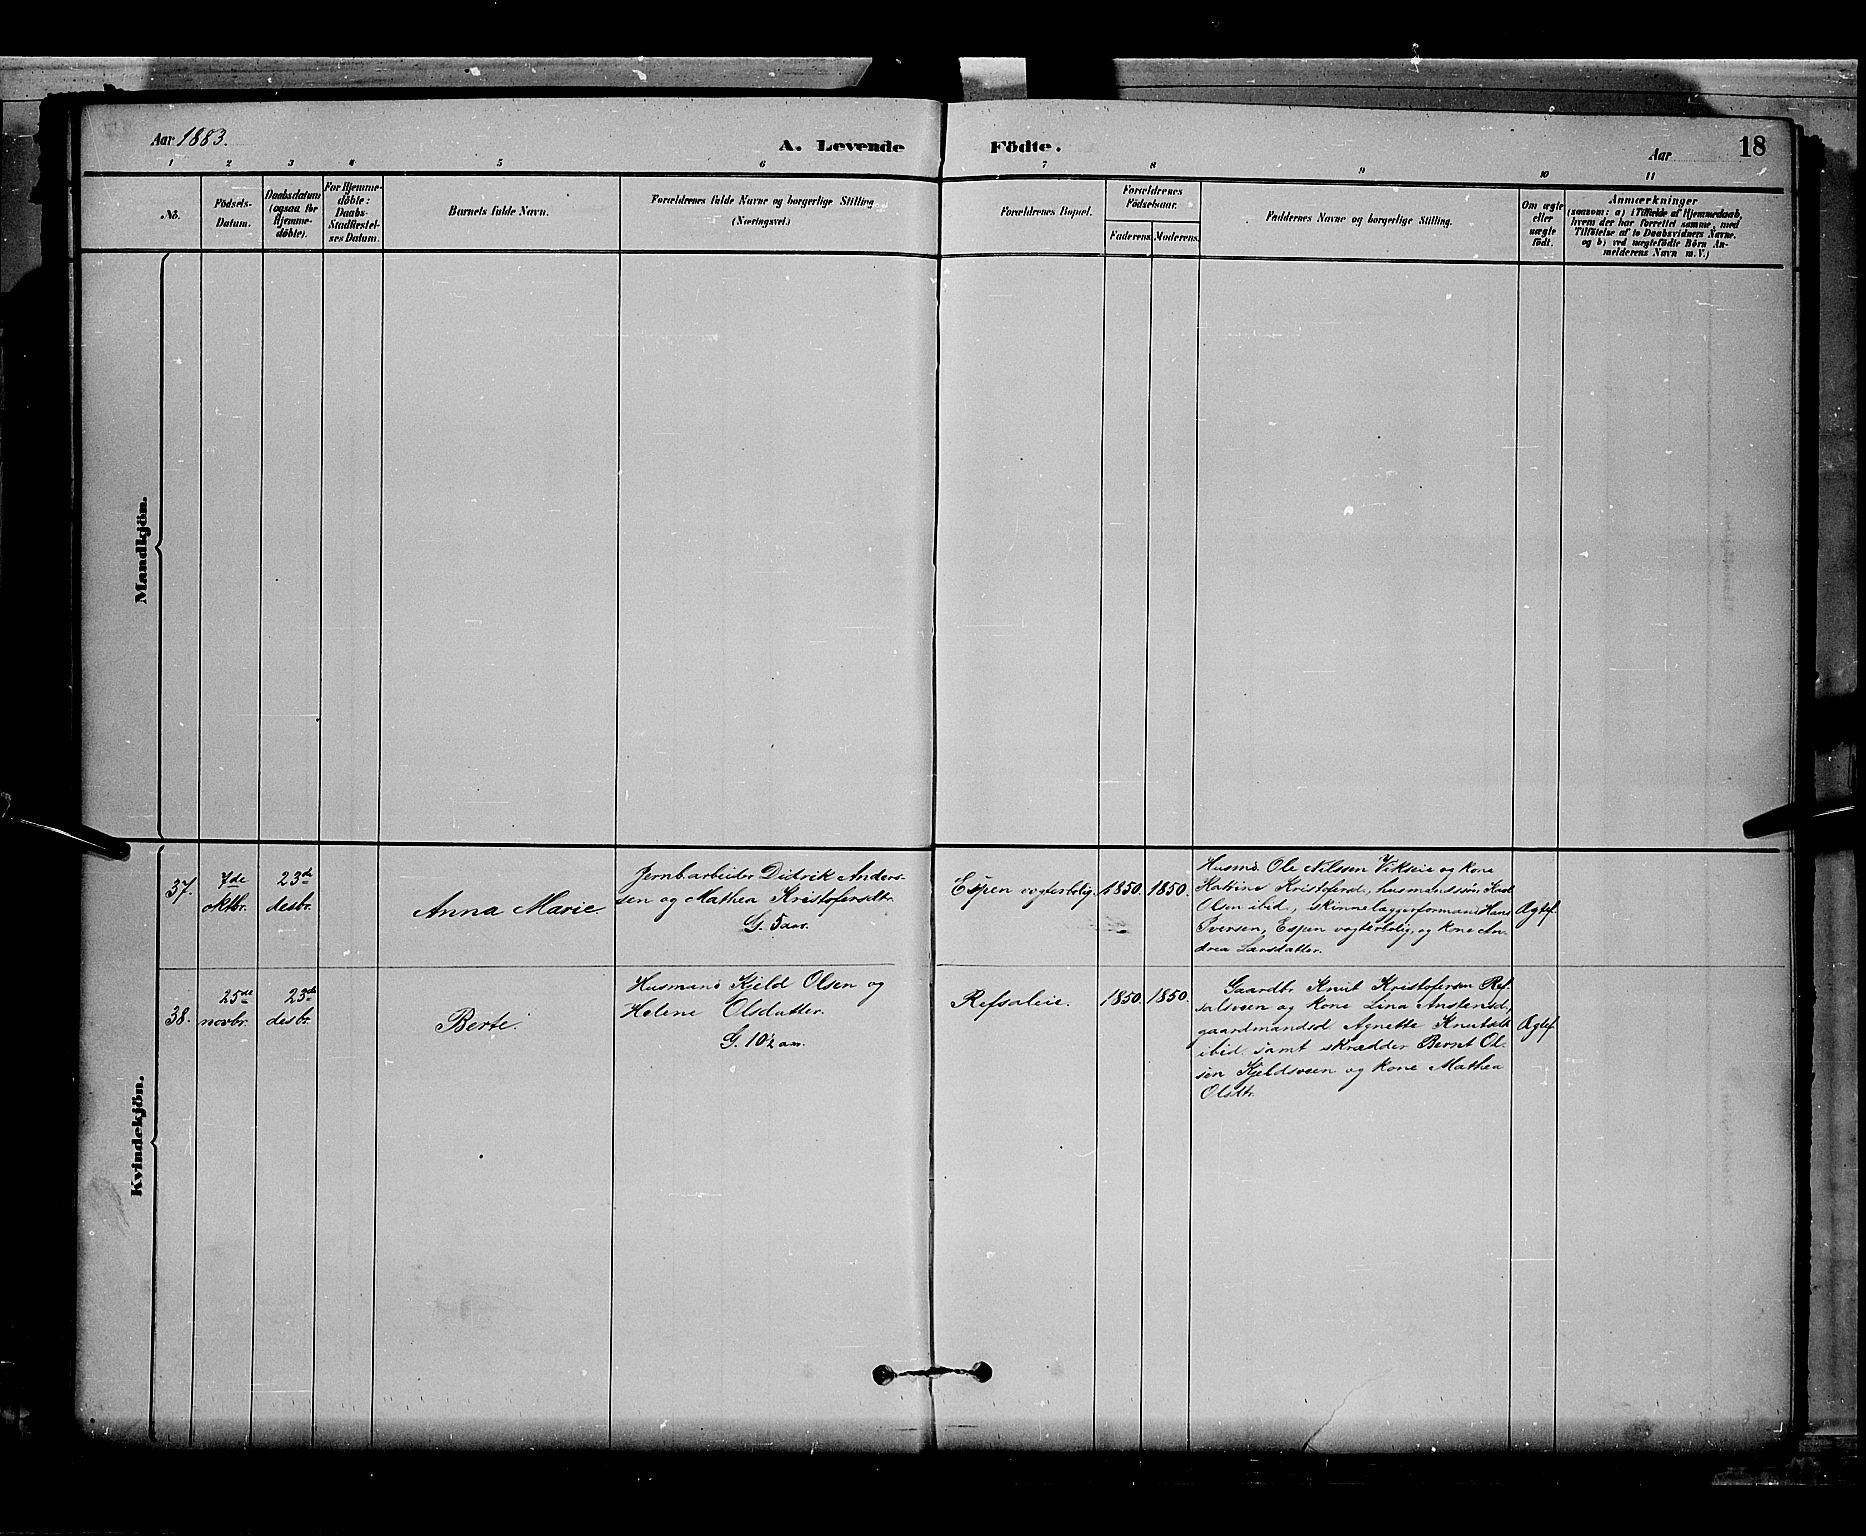 Aar 1883.
A. Levende
Födte.
Aar
18
1 2 3 4 5 6 7 8 9 10 11
No.
Födsels-
Datum.
Daabsdatum
(ogsaa for
Hjemme-
døbte).
For Hjemme-
døbte:
Daabs-
Stadfæstel-
ses Datum.
Barnets fulde Navn.
Forældrenes fulde Navne og borgerlige Stilling
(Næringsvei.)
Forældrenes Bopæl.
Forældrenes
Födselsaar.
Faderens. Moderens.
Faddernes Navne og borgerlige Stilling.
Om ægte
eller
uægte
født.
Anmærkninger
(saasom: a) i Tilfælde af Hjemmedaab,
hvem der har forrettet samme, med
Tilföielse af to Daabsvidners Navne,
og b) ved uægtefödte Börn An-
melderens Navn m. V.)
Mandkjön.
Kvindekjön.
37.
7de
oktbr.
23de
desbr.
Anna Marie.
Jernbarbeider Didrik Anders-
sen og Mathea Kristofersdtr.
G. 5 aar.
Espen vogterbolig.
1850.
1850.
Husmd. Ole Nilssen Vikseie og kone
Katrine Kristoferd., husmandssön Karl
Olsen ibid., skinnelæggerformand Hans
Iversen, Espen vogterbolig, og kone An-
drea Larsdatter.
Ægtef.
38.
25de
novbr.
23de
desbr.
Berte.
Husmand Kjeld Olsen og
Helene Olsdatter.
G. 10½ aar.
Refsaleie.
1850.
1850.
Gaardbr. Knut Kristofersen Ref-
salsveen og kone Lina Anstensd.,
gaardmandsd. Agnette Knutsdt.
ibid. samt skrædder Bernt Ol-
sen Kjeldsveen og kone Mathea
Olsdtr.
Ægtef.